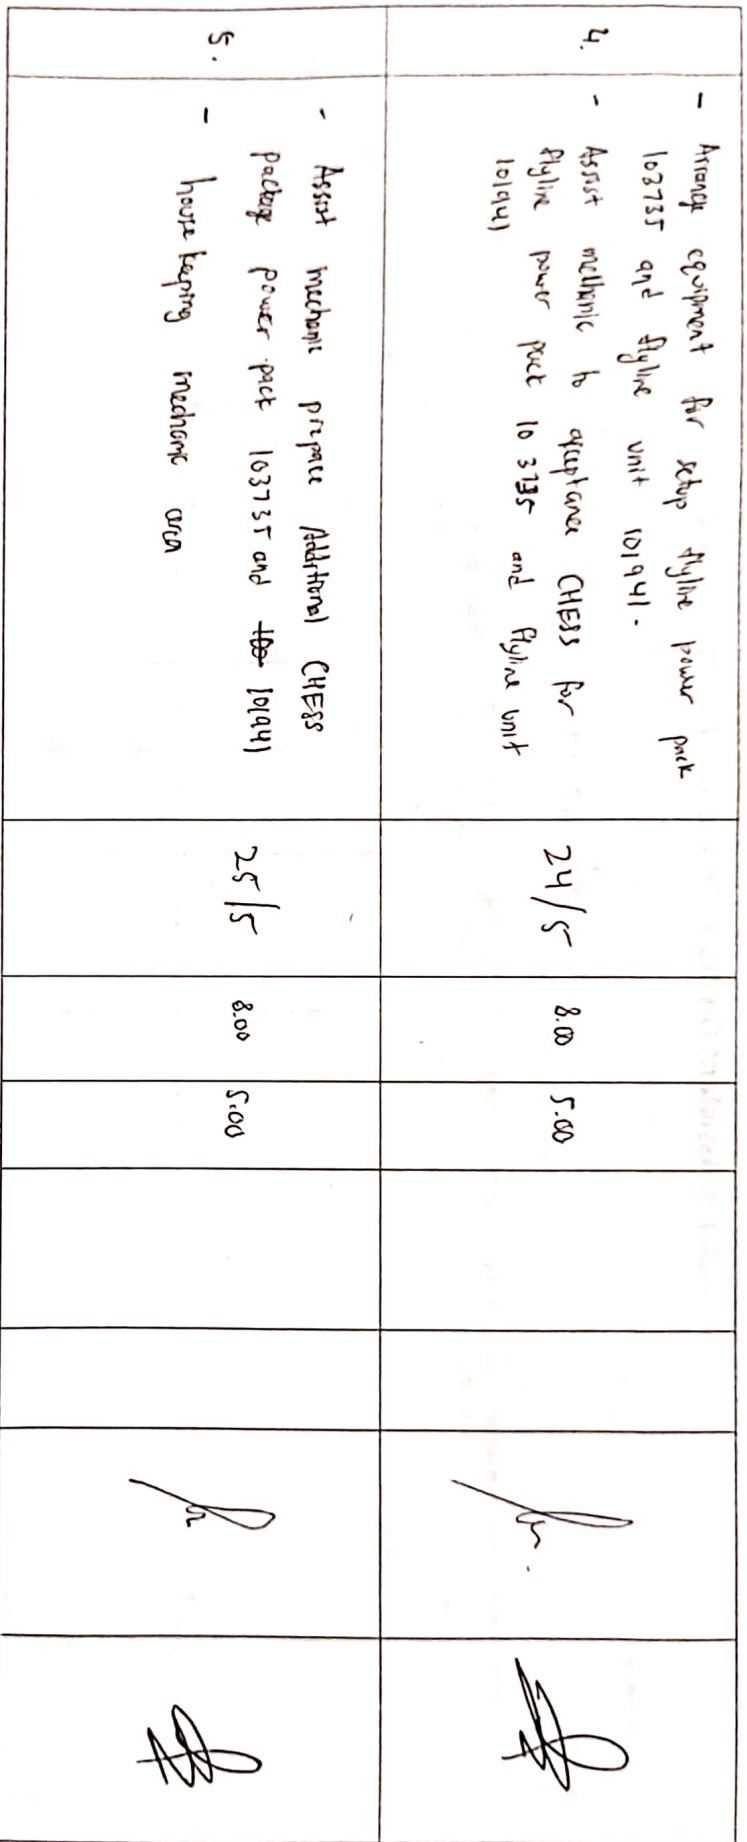 4.
- Arrange equipment for setup flyline power pack
103735 and flyline unit 101941.
- Assist mechanic to acceptance CHESS for
flyline power pack 103735 and flyline unit
101941
24/5
8.00
5.00
5.
- Assist mechanic prepare Additional CHESS
package power pack 103735 and 101941
- house keeping mechanic area
25/5
8.00
5.00